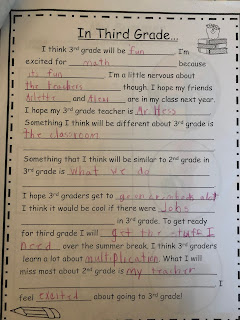 In Third Grade...
I think 3rd grade will be fun. I'm
excited for math because
its fun. I'm a little nervous about
the teachers though. I hope my friends
and are in my class next year.
I hope my 3rd grade teacher is Mr. Hess
Something I think will be different about 3rd grade is
the classroom
Something that I think will be similar to 2nd grade in
3rd grade is what we do
I hope 3rd graders get to
I think it would be cool if there were
in 3rd grade. To get ready
for third grade I will get the stuff I
need over the summer break. I think 3rd graders
learn a lot about multiplication. What I will
miss most about 2nd grade is my teacher
I
feel excited about going to 3rd grade!